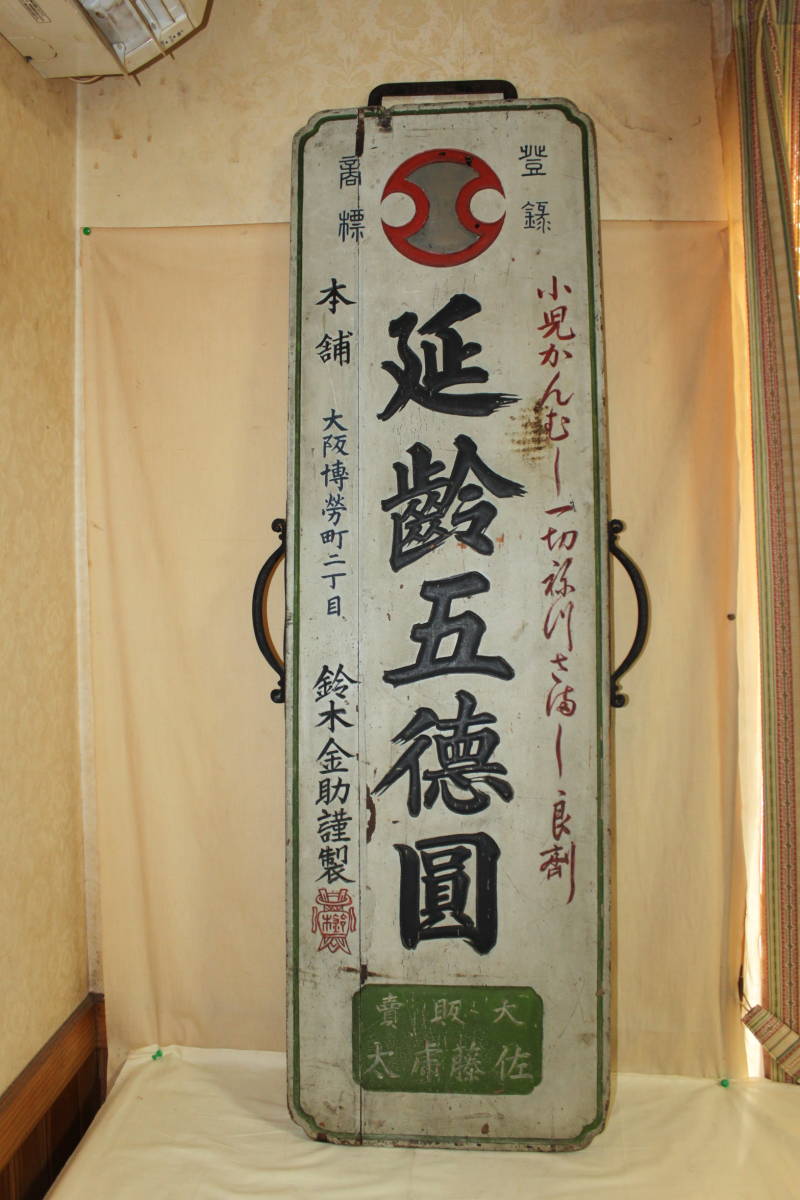 登録
商標
小児かんむし一切祢川さまし良剤
延齡五德圓
本舗
大阪博勞町二丁目
鈴木金助謹製
鈴木
大販賣
佐藤甫太